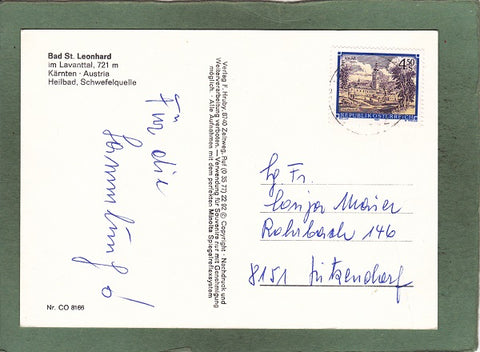 Bad St. Leonhard
im Lavanttal, 721 m
Kärnten · Austria
Heilbad, Schwefelquelle
Für die
Sammlung!
Nr. CO 8166
Verlag F. Hruby 8740 Zeltweg, Ruf (0 35 77) 22 82 © Copyright · Nachdruck und
Weiterverarbeitung verboten. — Verwendung für Souvenirs nur mit Genehmigung
möglich. · Alle Aufnahmen mit dem perfekten Minolta Spiegelreflexsystem
4.50
REPUBLIK ÖSTERREICH
Fr.
Sonja Maier
Rohrbach 146
8151 Hitzendorf